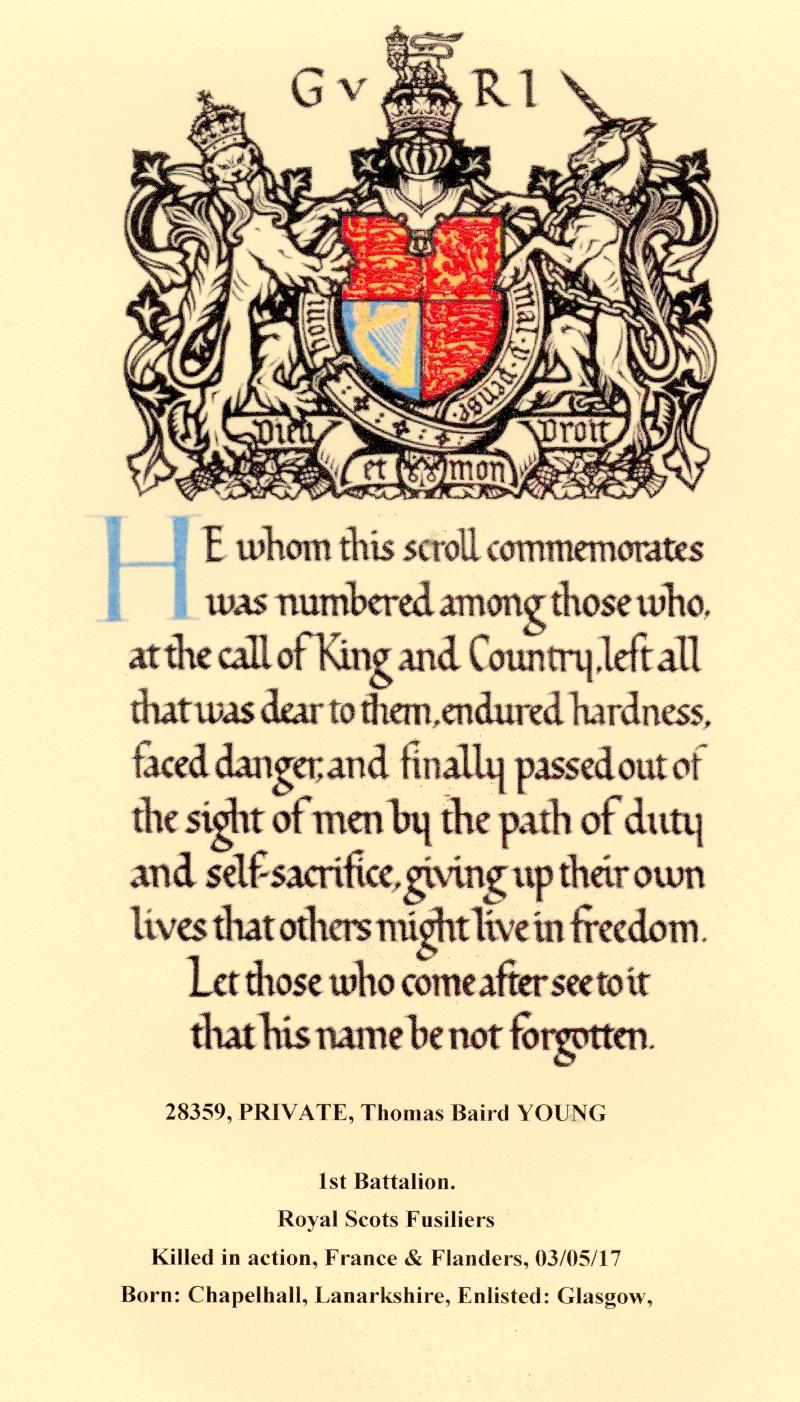 G V R I
honi mal·y·pense
Dieu Droit
et mon
HE whom this scroll commemorates
was numbered among those who,
at the call of King and Country, left all
that was dear to them, endured hardness,
faced danger, and finally passed out of
the sight of men by the path of duty
and self-sacrifice, giving up their own
lives that others might live in freedom.
Let those who come after see to it
that his name be not forgotten.
28359, PRIVATE, Thomas Baird YOUNG
1st Battalion.
Royal Scots Fusiliers
Killed in action, France & Flanders, 03/05/17
Born: Chapelhall, Lanarkshire, Enlisted: Glasgow,